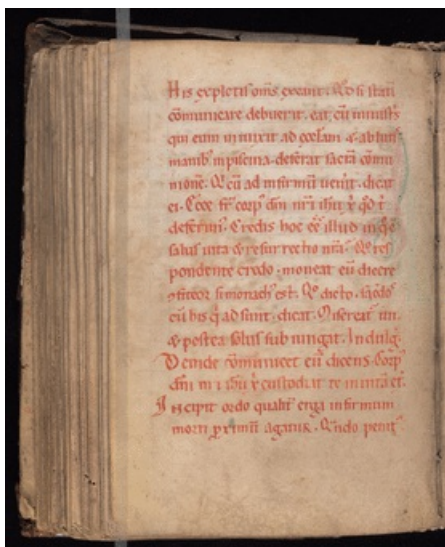 His expletis om̄s exeant. Qd̄ si statī
cōmunicare debuerit. eat cū ministꝰ
qui eum inunxit ad eccl̄am & ablutiſ
manibꝰ in piscina. deferat sacrā cōmu
nionē. Q̄ cū ad infirmū uen̄it. dicat
ei. Ecce fr̄ corpꝰ dn̄i nr̄i ih̄u x̄ qd̄ t̄
deferim. Credis hoc eē illud in q̄ ē
salus uita & resurrectio nr̄a. Q̄o res
pondente credo. moneat eū dicere
ꝯfiteor si monachꝰ est. Q̄o dicto. sac̄dos
cū his q̄ adsunt. dicat. Misereat̄ tui.
& postea solus subiungat. Indulḡ.
Deinde cōmunicet eū dicens. Corpꝰ
dn̄i n̄i ih̄u x̄ custodiat te in uitā et̄.
Incipit ordo qualit̄ erga infirmum
morti ꝓximū agatur. Q̄ndo penitꝰ